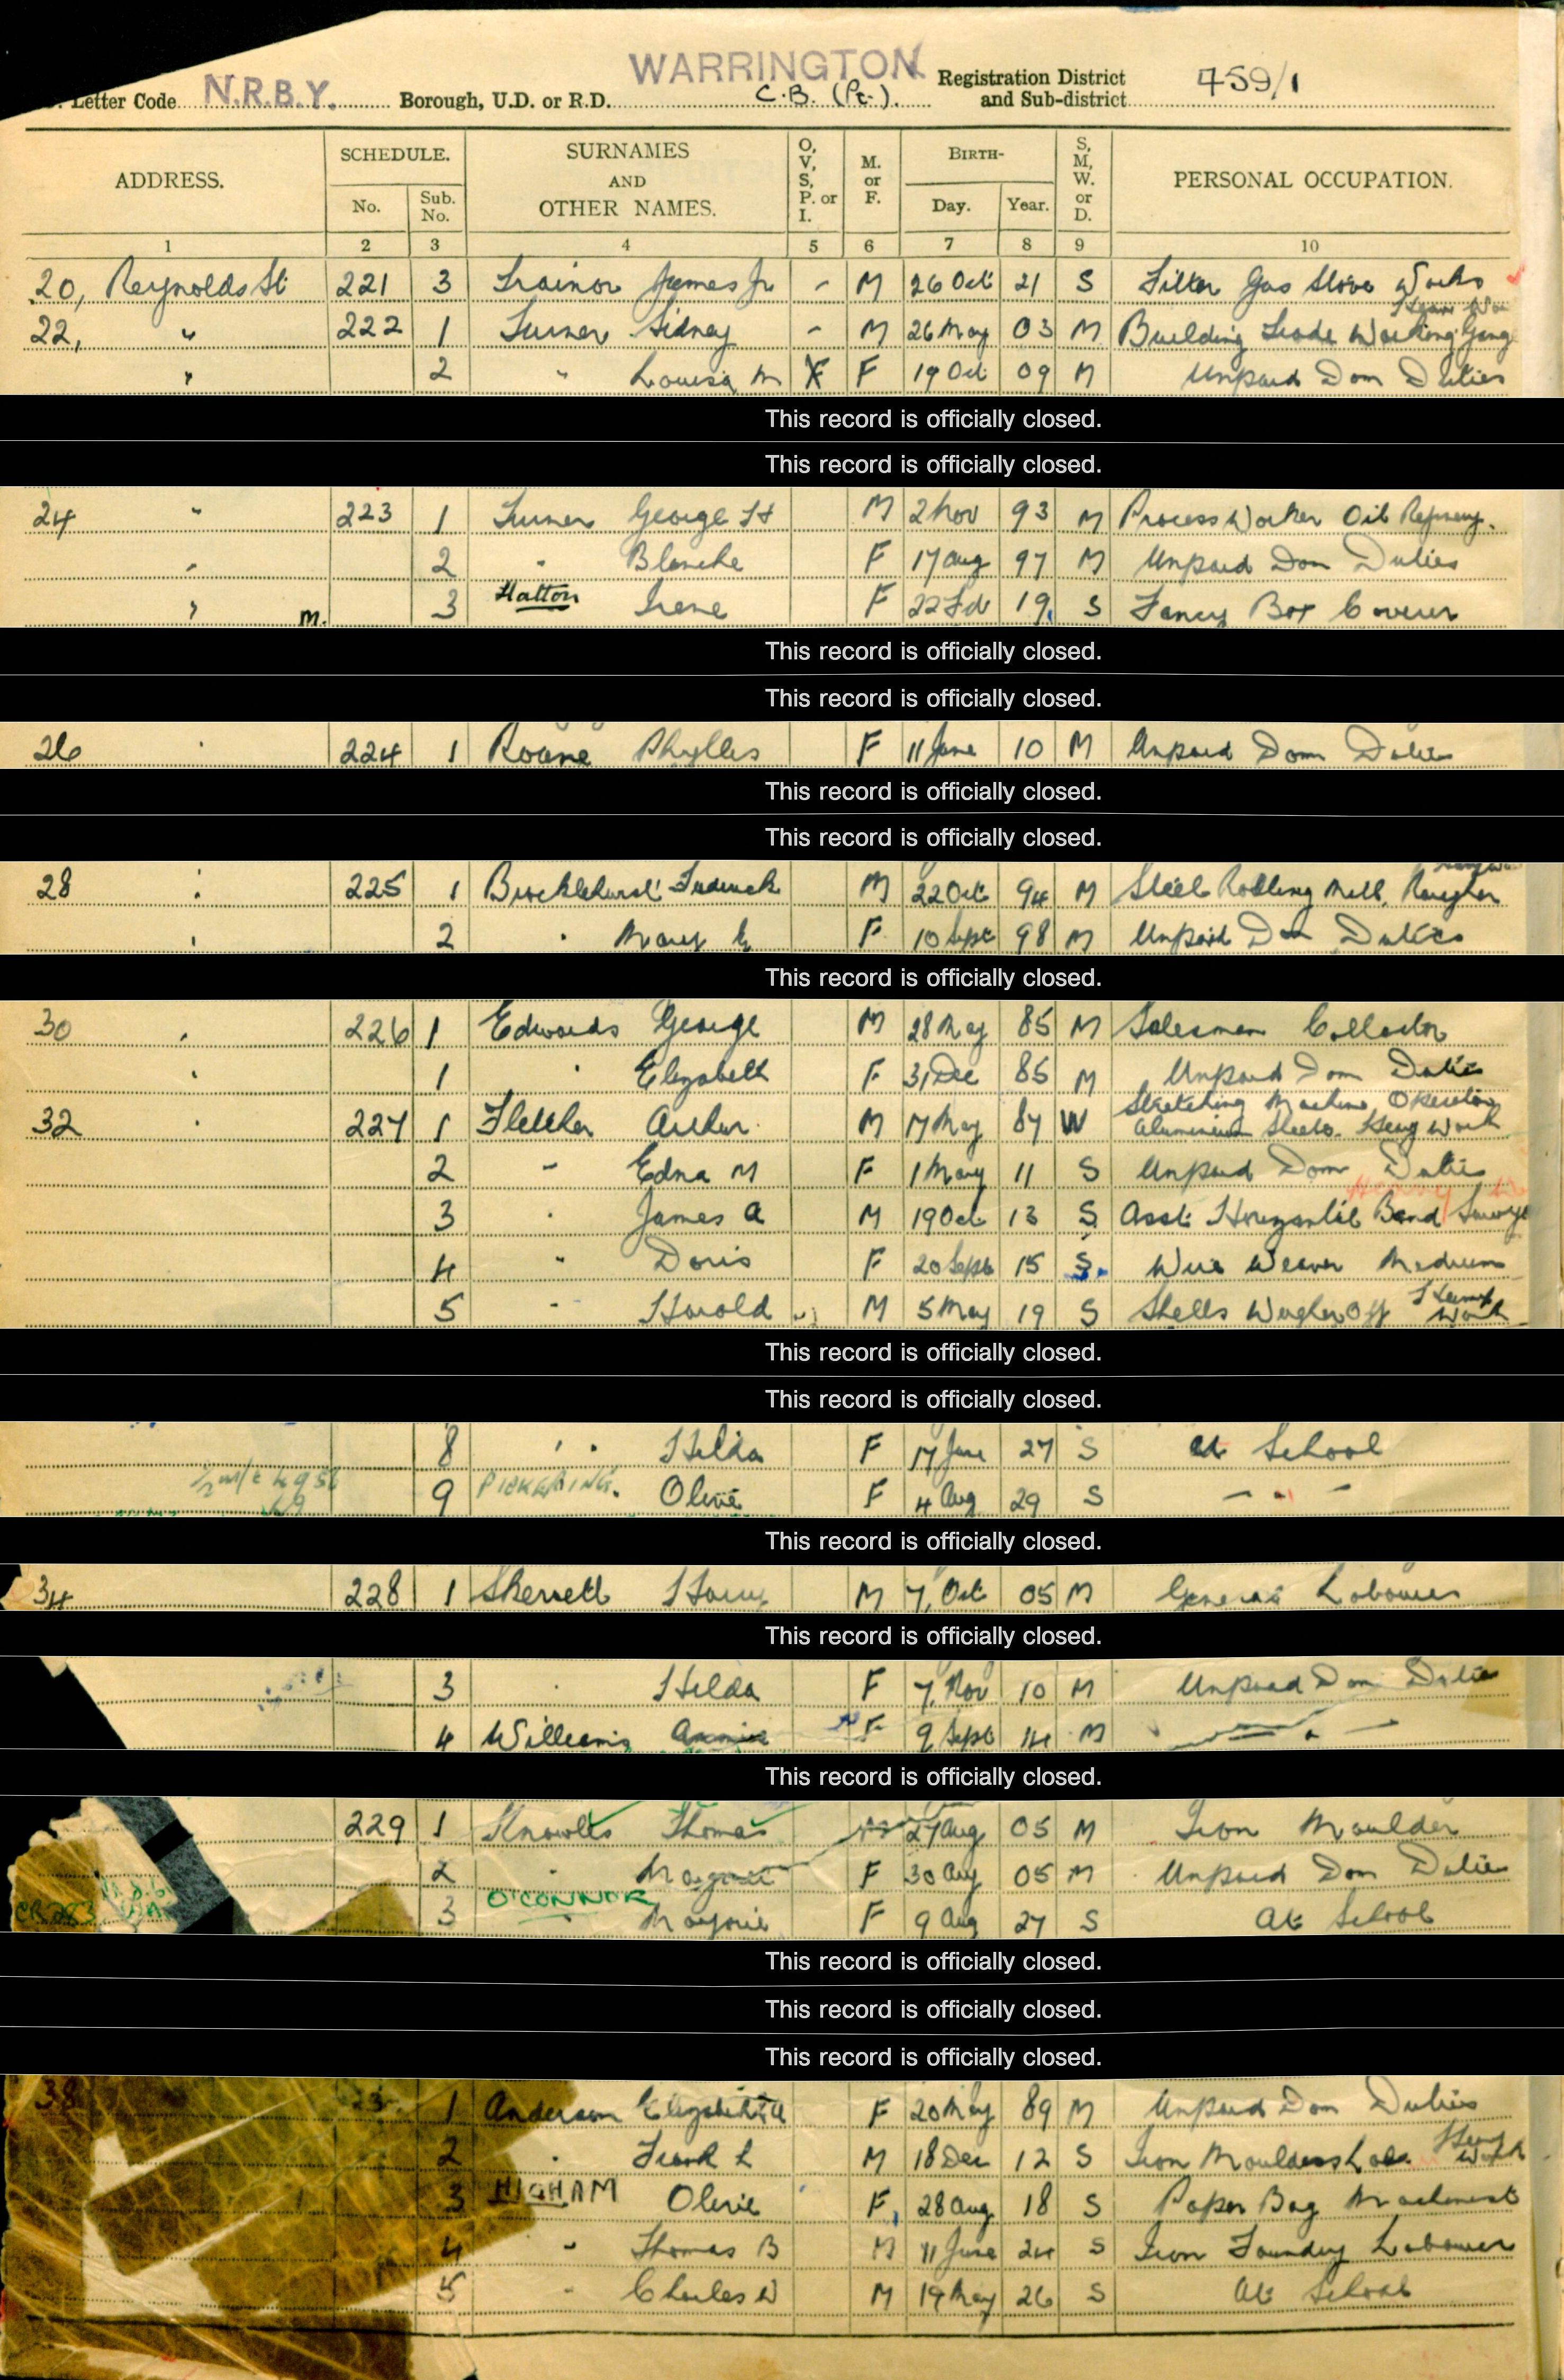 Letter Code N.R.B.Y. Borough, U.D. or R.D. WARRINGTON C.B. (Pt.). Registration District and Sub-district 459/1
ADDRESS. SCHEDULE. No. Sub. No. SURNAMES AND OTHER NAMES. O, V, S, P. or I. M. or F. BIRTH- Day. Year. S, M, W. or D. PERSONAL OCCUPATION.
1 2 3 4 5 6 7 8 9 10
20, Reynolds St 221 3 Trainor James Jr - M 26 Oct 21 S Fitter Gas Stove Works
22, " 222 1 Turner Sidney - M 26 May 03 M Building Trade Working Gang
" 2 " Louisa M F 19 Oct 09 M Unpaid Dom Duties
This record is officially closed.
This record is officially closed.
24 " 223 1 Turner George H M 2 Nov 93 M Process Worker Oil Refinery.
" 2 " Blanche F 17 Aug 97 M Unpaid Dom Duties
" m. 3 Hatton Irene F 22 Feb 19 S Fancy Box Coverer
This record is officially closed.
This record is officially closed.
26 " 224 1 Roane Phyllis F 11 June 10 M Unpaid Dom Duties
This record is officially closed.
This record is officially closed.
28 " 225 1 Brocklehurst Frederick M 22 Oct 94 M Steel Rolling Mill, Rougher
" 2 " Mary E F 10 Sept 98 M Unpaid Dom Duties
This record is officially closed.
30 " 226 1 Edwards George M 28 May 85 M Salesman Collector
" 1 " Elizabeth F 31 Dec 85 M Unpaid Dom Duties
32 " 227 1 Fletcher Arthur M 17 May 87 W Stretching Machine Operator Aluminium Sheets. Heavy Work
2 " Edna M F 1 May 11 S Unpaid Dom Duties
3 " James A M 19 Oct 13 S Asst Horizontal Band Sawyer
4 " Doris F 20 Sept 15 S. Wire Weaver Medium
5 " Harold M 5 May 19 S Shells Weigher Off Heavy Work
This record is officially closed.
This record is officially closed.
8 " " Hilda F 17 June 27 S At School
9 PICKERING. Olive F 4 Aug 29 S - " -
This record is officially closed.
34 228 1 Sherratt Harry M 7, Oct 05 M General Labourer
This record is officially closed.
3 " Hilda F 7, Nov 10 M Unpaid Dom Duties
4 Williams Annie F 9 Sept 14 M — " —
This record is officially closed.
229 1 Knowles Thomas M 27 Aug 05 M Iron Moulder
2 " Margaret F 30 Aug 05 M Unpaid Dom Duties
3 O'CONNOR " Marjorie F 9 Aug 27 S At School
This record is officially closed.
This record is officially closed.
This record is officially closed.
38 23 1 Anderson Elizabeth A F 20 May 89 M Unpaid Dom Duties
2 " Frank L M 18 Dec 12 S Iron Moulders Lab. Heavy Work
3 HIGHAM Olive F 28 Aug 18 S Paper Bag Machinist
4 " Thomas B M 11 June 24 S Iron Foundry Labourer
5 " Charles W M 19 May 26 S At School